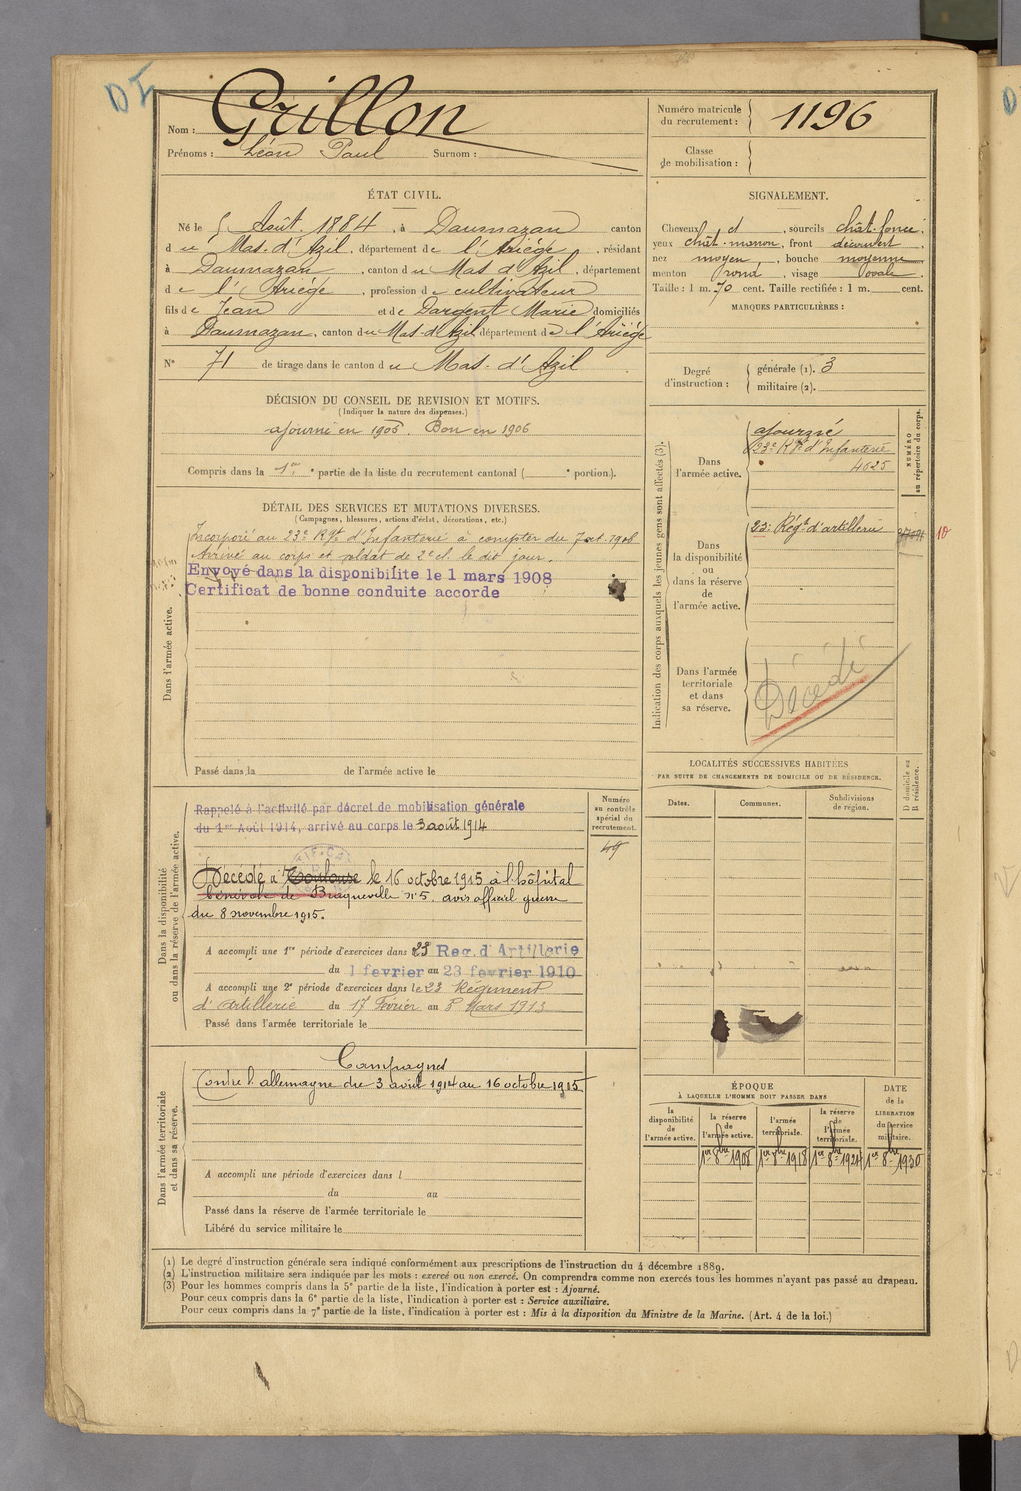 Grillon
Nom :
Prénoms : Léon Paul Surnom :
Numéro matricule du recrutement : 1196
Classe de mobilisation :
ÉTAT CIVIL.
Né le 5 Août 1884, à Daumazan canton
du Mas-d'Azil, département de l'Ariège, résidant
à Daumazan, canton du Mas d'Azil, département
de l'Ariège, profession de cultivateur
fils de Jean et de Dargent Marie domiciliés
à Daumazan, canton du Mas-d'Azil département de l'Ariège
N° 71 de tirage dans le canton du Mas-d'Azil
SIGNALEMENT.
Cheveux et, sourcils chât-foncé,
yeux chât-marron, front découvert,
nez moyen, bouche moyenne
menton rond, visage ovale.
Taille : 1 m. 70 cent. Taille rectifiée : 1 m. cent.
MARQUES PARTICULIÈRES :
Degré d'instruction :
générale (1). 3
militaire (2).
DÉCISION DU CONSEIL DE REVISION ET MOTIFS.
(Indiquer la nature des dispenses.)
ajourné en 1905. Bon en 1906
Compris dans la 1re partie de la liste du recrutement cantonal ( e portion).
DÉTAIL DES SERVICES ET MUTATIONS DIVERSES.
(Campagnes, blessures, actions d'éclat, décorations, etc.)
Dans l'armée active.
Incorporé au 23e Rgt d'Infanterie à compter du 7 oct. 1906
Arrivé au corps et soldat de 2e cl. le dit jour.
Envoyé dans la disponibilite le 1 mars 1908
Certificat de bonne conduite accorde
Passé dans la de l'armée active le
Indication des corps auxquels les jeunes gens sont affectés (3).
NUMÉRO au répertoire du corps.
Dans l'armée active.
ajourné
23e Rgt d'Infanterie
4625
Dans la disponibilité ou dans la réserve de l'armée active.
23e Régt d'artillerie
10
Dans l'armée territoriale et dans sa réserve.
Décédé
LOCALITÉS SUCCESSIVES HABITÉES
PAR SUITE DE CHANGEMENTS DE DOMICILE OU DE RÉSIDENCE.
Dates. Communes. Subdivisions de région.
D domicile ou R résidence.
Dans la disponibilité ou dans la réserve de l'armée active.
Numéro au contrôle spécial du recrutement.
49
Rappelé à l'activité par décret de mobilisation générale
du 1er Août 1914, arrivé au corps le 3 août 1914
Décédé à Toulouse le 16 octobre 1915 à l'hôpital
bénévole de Bragueville n°5. avis officiel guerre
du 8 novembre 1915.
A accompli une 1re période d'exercices dans 23 Reg. d'Artillerie
du 1 fevrier au 23 fevrier 1910
A accompli une 2e période d'exercices dans le 23 Régiment
d'Artillerie du 17 Février au 8 Mars 1913
Passé dans l'armée territoriale le
Dans l'armée territoriale et dans sa réserve.
Campagnes
Contre l'allemagne du 3 août 1914 au 16 octobre 1915
A accompli une période d'exercices dans l
du au
Passé dans la réserve de l'armée territoriale le
Libéré du service militaire le
ÉPOQUE
À LAQUELLE L'HOMME DOIT PASSER DANS
la disponibilité de l'armée active.
la réserve de l'armée active.
l'armée territoriale.
la réserve de l'armée territoriale.
DATE de la LIBÉRATION du service militaire.
1er 8bre 1908 1er 8bre 1918 1er 8bre 1924 1er 8bre 1930
(1) Le degré d'instruction générale sera indiqué conformément aux prescriptions de l'instruction du 4 décembre 1889.
(2) L'instruction militaire sera indiquée par les mots : exercé ou non exercé. On comprendra comme non exercés tous les hommes n'ayant pas passé au drapeau.
(3) Pour les hommes compris dans la 5e partie de la liste, l'indication à porter est : Ajourné.
Pour ceux compris dans la 6e partie de la liste, l'indication à porter est : Service auxiliaire.
Pour ceux compris dans la 7e partie de la liste, l'indication à porter est : Mis à la disposition du Ministre de la Marine. (Art. 4 de la loi.)